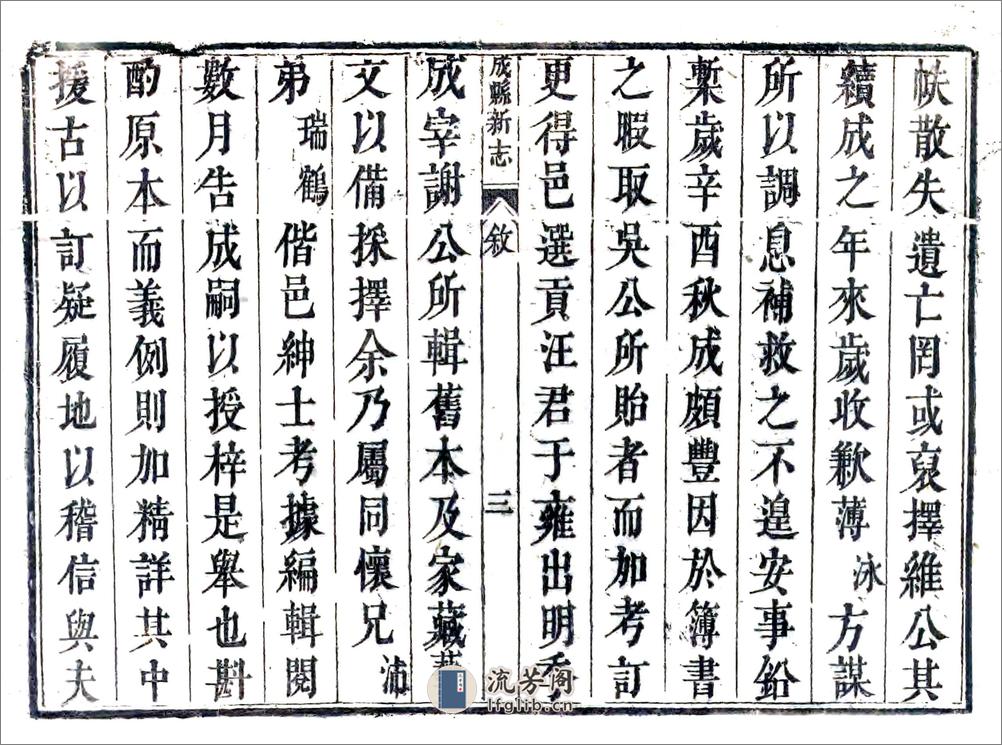 帙散失遺亡罔或裒擇維公其
續成之年來歲收歉薄泳方謀
所以調息補救之不遑安事鉛
槧歲辛酉秋成頗豐因於簿書
之暇取吳公所貽者而加考訂
更得邑選貢汪君于雍出明季
成縣新志 敘 三
成宰謝公所輯舊本及家藏
文以備採擇余乃屬同懷兄沛
弟瑞鶴偕邑紳士考據編輯閱
數月告成嗣以授梓是舉也斟
酌原本而義例則加精詳其中
援古以訂疑履地以稽信與夫
流芳阁
lfglib.cn